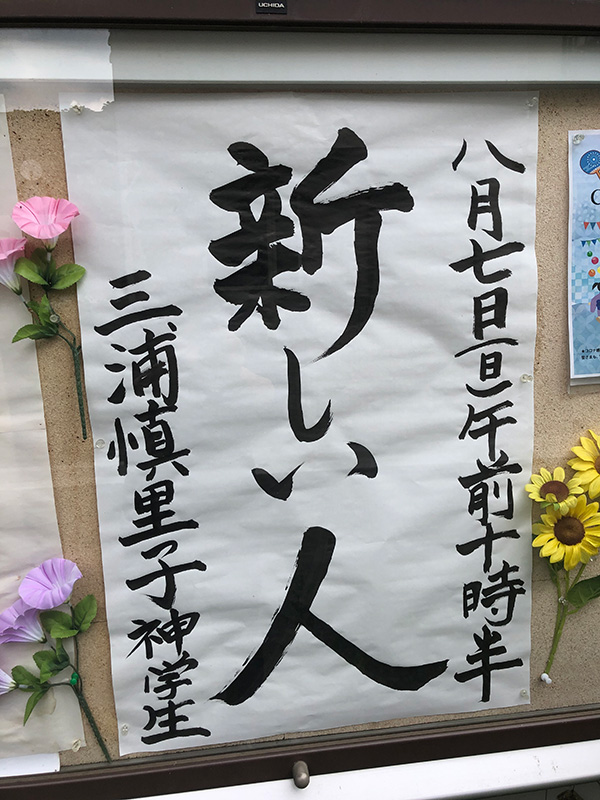 UCHIDA
八月七日(日)午前十時半
新しい人
三浦慎里子神学生